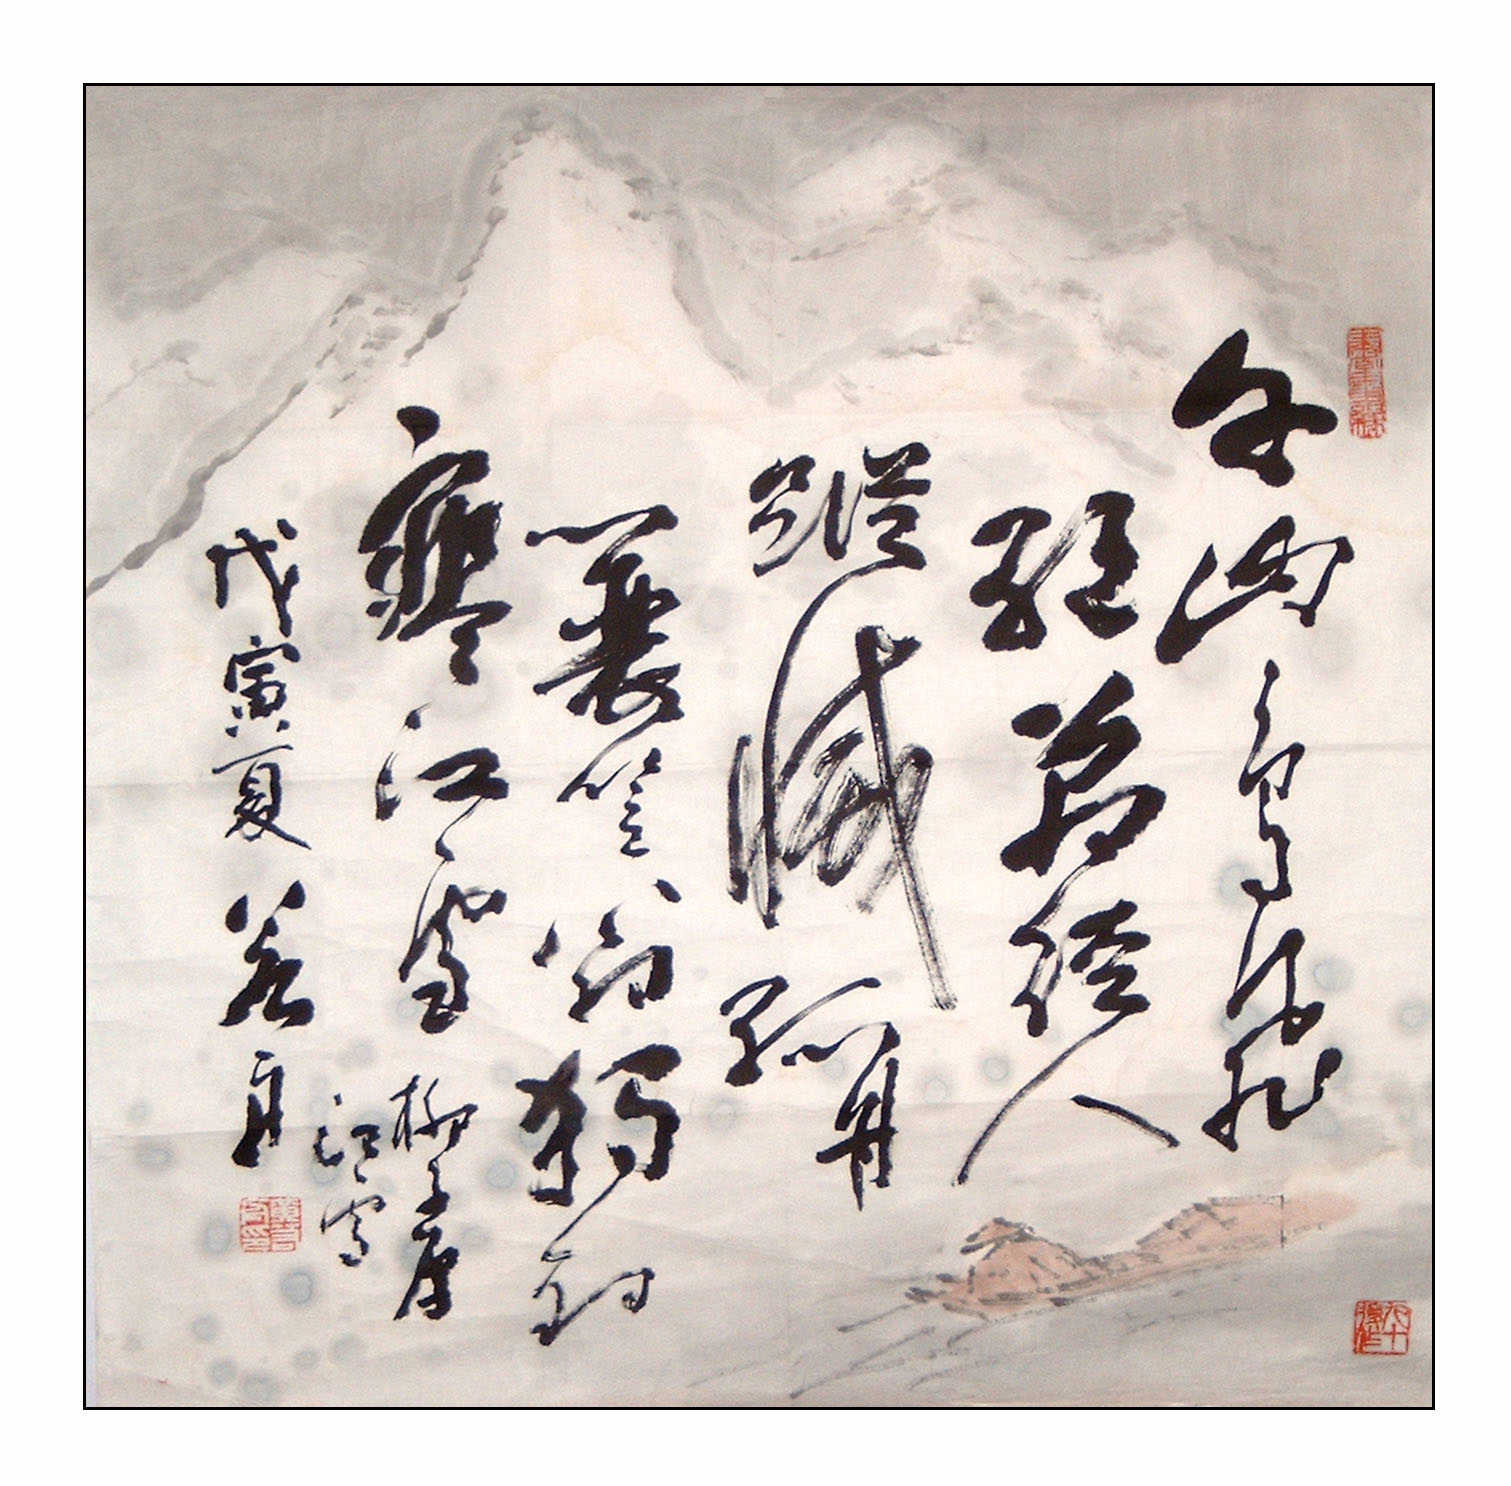 千山鳥飛
絕萬徑人
蹤滅孤舟
蓑笠翁獨釣
寒江雪 柳子厚
江雪
戊寅夏